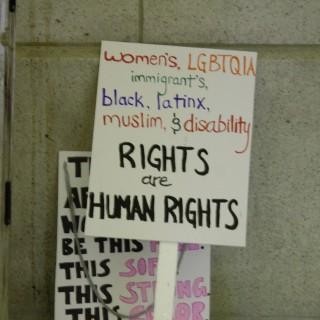 women's, LGBTQIA
immigrant's,
black, latinx,
muslim, & disability
RIGHTS
are
HUMAN RIGHTS
BE THIS
THIS SOF
THIS STRONG.
THIS COLOR